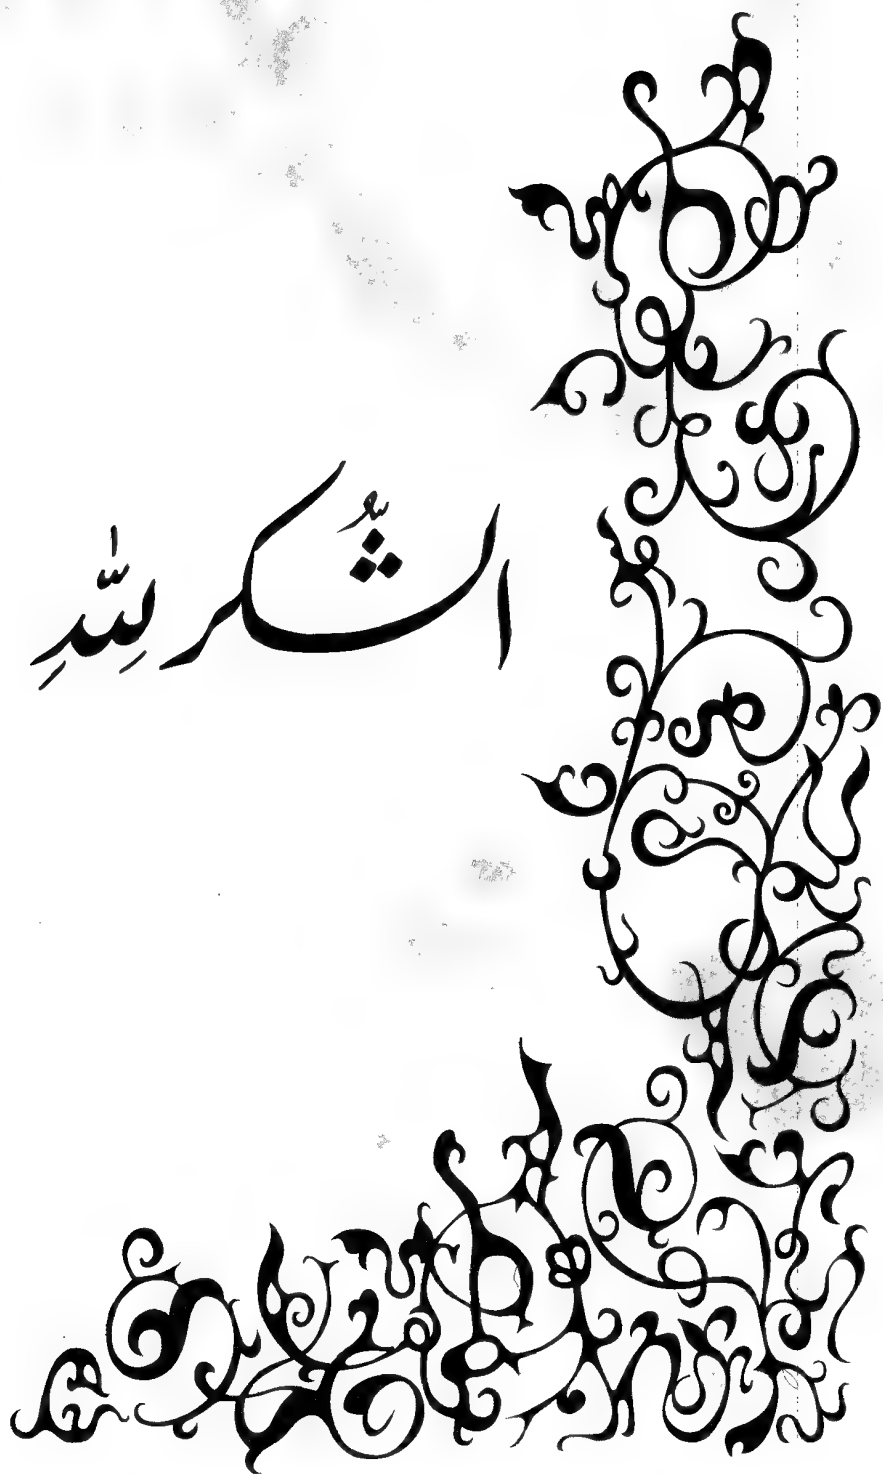 الشُّكر لِلّٰهِ